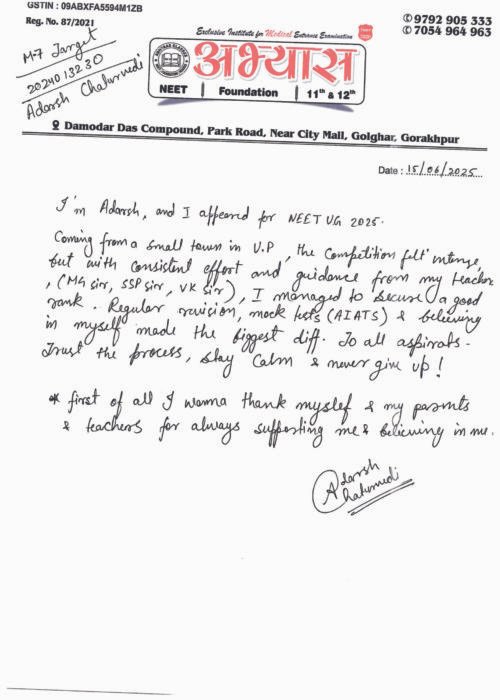 GSTIN : 09ABXFA5594M1ZB
Reg. No. 87/2021
M-7 Target
2024013230
Adarsh Chaturvedi
Exclusive Institute for Medical Entrance Examination
अभ्यास
NEET | Foundation | 11th & 12th
9792 905 333
7054 964 963
Damodar Das Compound, Park Road, Near City Mall, Golghar, Gorakhpur
Date : 15/06/2025
I'm Adarsh, and I appeared for NEET UG 2025.
Coming from a small town in U.P, the Competition felt intense,
but with consistent effort and guidance from my teachers
, (MG sir, SSP sir, VK sir), I managed to secure a good
rank. Regular revision, mock tests (AIATS) & believing
in myself made the biggest diff. To all aspirants-
Trust the process, stay Calm & never give up!
* first of all I wanna thank myslef & my parents
& teachers for always supporting me & believing in me.
Adarsh
Chaturvedi